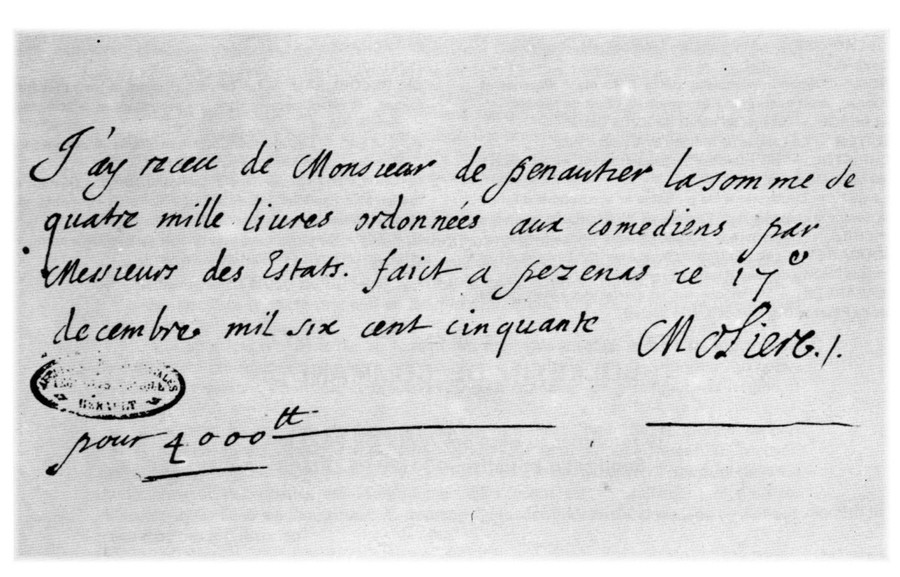 J'ay receu de Monsieur de penautier la somme de
quatre mille liures ordonnées aux comediens par
Messieurs des Estats. faict a pezenas ce 17e
decembre mil six cent cinquante
Moliere./.
HERAULT
pour 4000tt